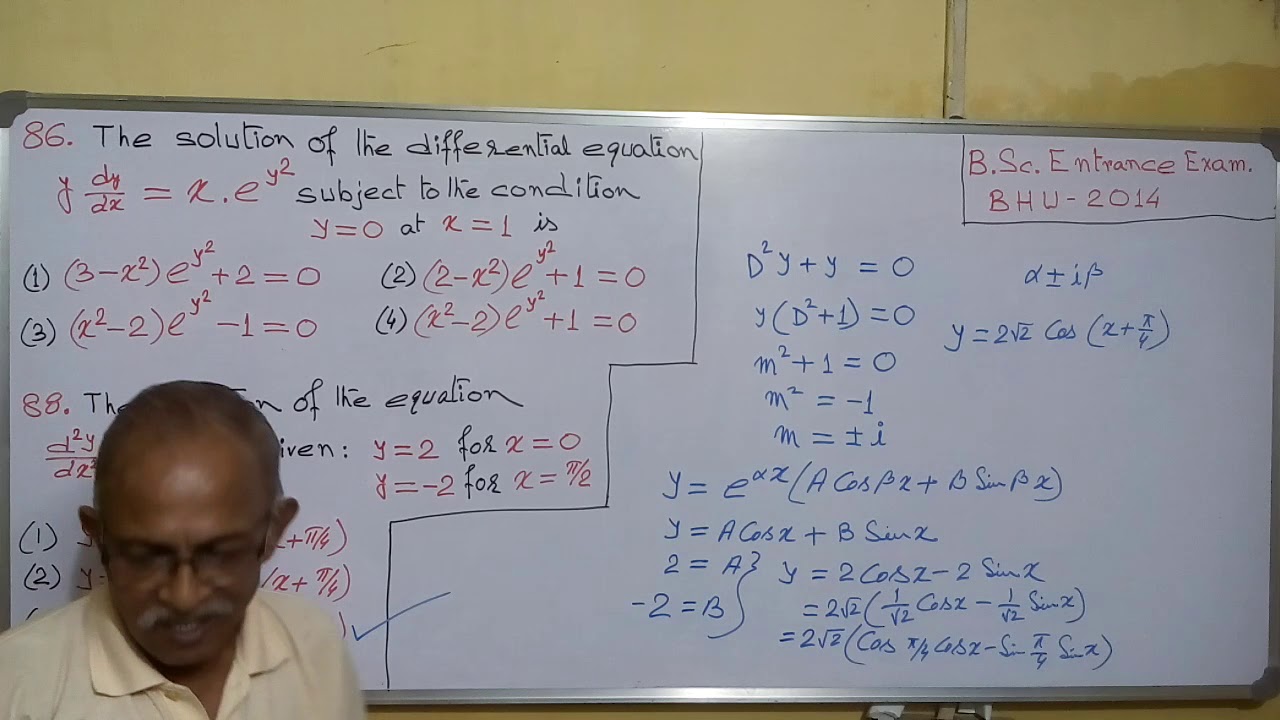 86. The solution of the differential equation
y dy/dx = x . e^{y^2} subject to the condition
y = 0 at x = 1 is
(1) (3 – x²) e^{y^2} + 2 = 0 (2) (2 – x²) e^{y^2} + 1 = 0
(3) (x² – 2) e^{y^2} – 1 = 0 (4) (x² – 2) e^{y^2} + 1 = 0
88. of the equation
d²y : y = 2 for x = 0
y = –2 for x = π/2
(1) x + π/4)
(2) y x + π/4)
B.Sc. Entrance Exam.
BHU - 2014
D²y + y = 0
y(D² + 1) = 0
m² + 1 = 0
m² = –1
m = ± i
α ± iβ
y = 2√2 Cos (x + π/4)
y = e^{αx} (A Cos βx + B Sin βx)
y = A Cos x + B Sin x
2 = A }
–2 = B
y = 2 Cos x – 2 Sin x
= 2√2 (1/√2 Cos x – 1/√2 Sin x)
= 2√2 (Cos π/4 Cos x – Sin π/4 Sin x)